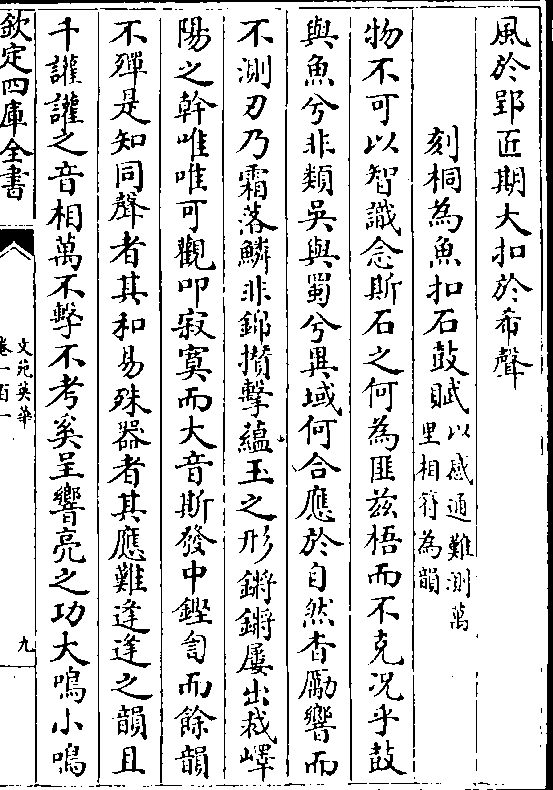 風於郢匠期大扣於希聲
刻桐為魚扣石鼓賦以感通難測萬
里相符為韻
物不可以智識念斯石之何為匪兹梧而不克况乎鼓
與魚兮非類吳與蜀兮異域何合應於自然杳勵響而
不測刃乃霜落鱗非錦攅擊蘊玉之形鏘鏘屢出裁嶧
陽之幹唯唯可觀叩寂寞而大音斯發中鏗訇而餘韻
不殫是知同聲者其和易殊器者其應難逢逢之韻且
千讙讙之音相萬不擊不考奚呈響亮之功大鳴小鳴
欽定四庫全書
文苑英華
卷一百一
九